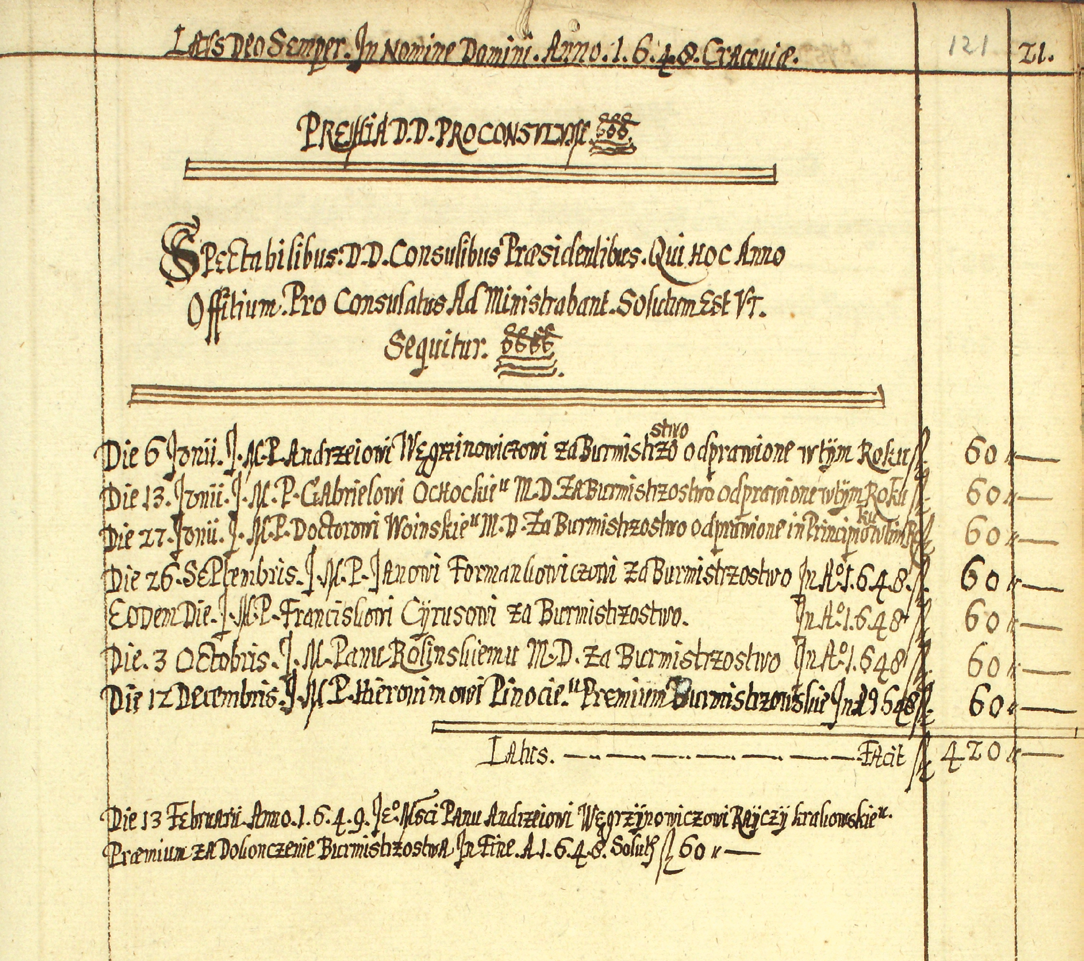 Laus Deo Semper. In Nomine Domini. Anno. 1.6.4.8. Cracoviæ. 121 21.
PREMIA D.D. PROCONSULUM
Spectabilibus: D.D. Consulibus Præsidentibus. Qui Hoc Anno
Offitium. Pro Consulatus Ad Ministrabant. Solutum Est Vt.
Sequitur.
Die 6 Junii. J. M. P. Andrzeiowi Węgrzinowiczowi za Burmistrzostwo odprawione w tÿm Roku fl 60 „ —
Die 13. Junii. J. M. P. Gabrielowi Ochockieu M.D. Za Burmistrzostwo odprawione w tÿm Roku fl. 60 „ —
Die 27. Junii. J. M. P. Doctorowi Woinskieu M.D. Za Burmistrzostwo odprawione in Principio fl 60 „ —
Die 26. Septembris. J. M. P. Janowi Formankowiczowi za Burmistrzostwo In Aº. 1.6.4.8. fl 60 „ —
Eodem Die. J. M. P. Franciskowi Cÿrusowi za Burmistrzostwo. In Aº. 1.6.48 fl 60 „ —
Die. 3 Octobris. J. M. Panu Rolinskiemu M.D. za Burmistrzostwo In Aº. 1.648 fl 60 „ —
Die 12 Decembris. J. M. P. Hieronimowi Pinocieu Premium Burmistrzowskie In Aº 1648 fl. 60 „ —
Latus. — — — — Facit fl 420 „ —
Die 13 Februarii. Anno. 1.6.4.9. Jeº Mści Panu Andrzeiowi Węgrzÿnowiczowi Raÿczÿ krakowskieu.
Præmium za Dokonczenie Burmistrzostwa In Fine. A. 1.6.4.8. Solut fl 60 „ —